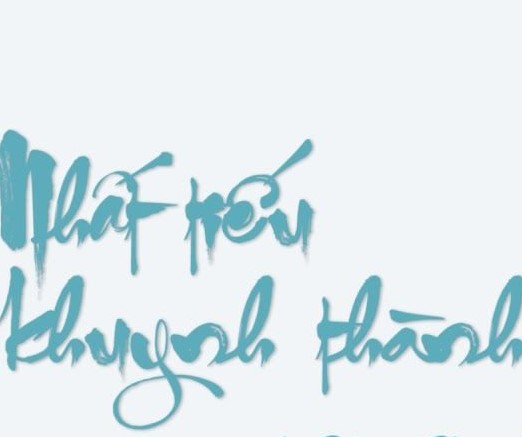 Nhất tiếu
khuynh thành